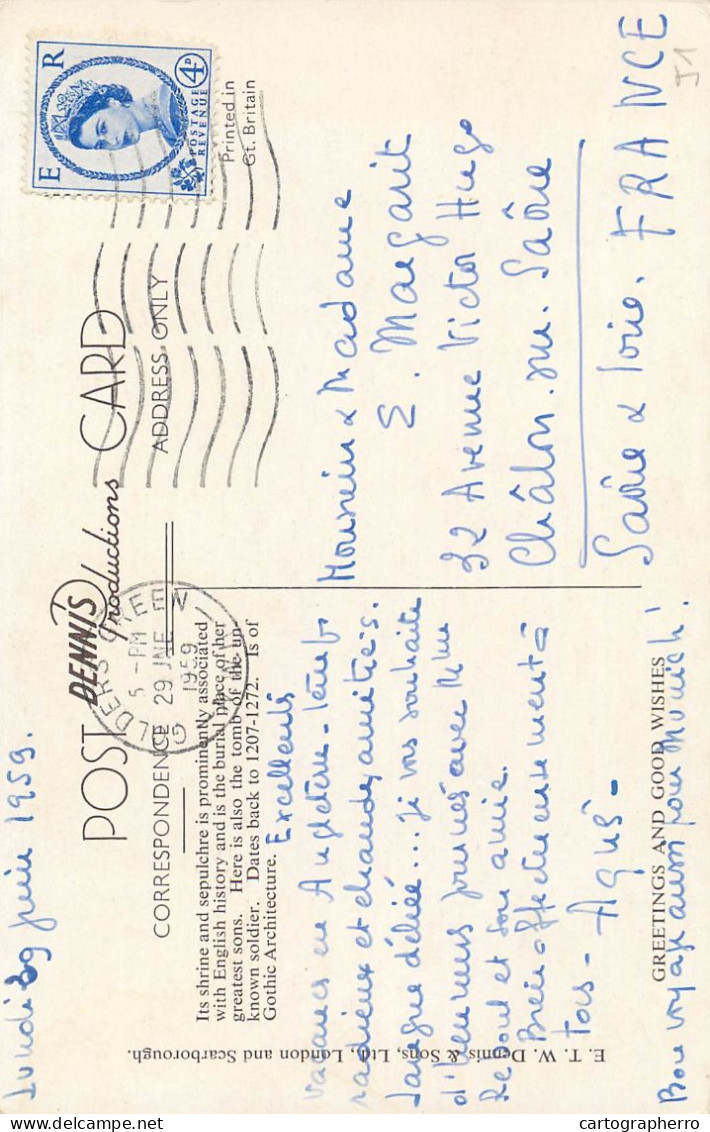 Lundi 29 juin 1959.
POST CARD
DENNIS
Productions
CORRESPONDENCE
ADDRESS ONLY
Printed in
Gt. Britain
E R
4D
POSTAGE
REVENUE
GOLDERS GREEN
5 - PM
29 JNE
1959
N.W.11
Its shrine and sepulchre is prominently associated
with English history and is the burial place of her
greatest sons. Here is also the tomb of the un-
known soldier. Dates back to 1207-1272. Is of
Gothic Architecture.
Excellents
vacances en Angleterre - temps
radieux et chaudes amitiés.
Langue déliée... je vous souhaite
d'heureuses journées avec Mme
Reboul et son amie.
Bien affectueusement à
Tous - Agnès -
GREETINGS AND GOOD WISHES
Bon voyage aussi pour Munich!
E. T. W. Dennis & Sons, Ltd., London and Scarborough.
Monsieur & Madame
E. Margarit
32 Avenue Victor Hugo
Châlon. sur. Saône
Saône & Loire. FRANCE
J1
delcampe.net
cartographerro